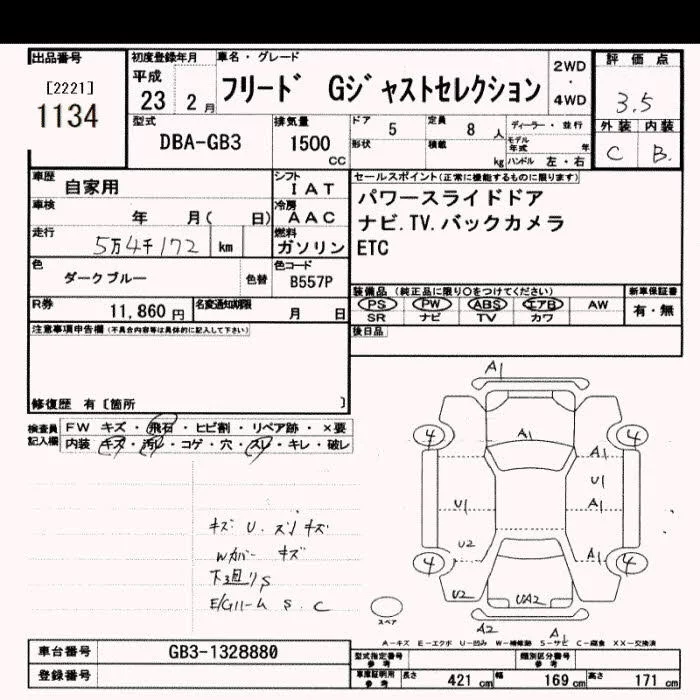 出品番号
[2221]
1134
初度登録年月
平成
23 2 月
車名・グレード
フリード Gジャストセレクション
2WD
・
4WD
評価点
3.5
外装 内装
C B.
型式
DBA-GB3
排気量
1500
CC
ドア 5
定員 8 人
ディーラー・並行
形状
積載 kg
モデル年式 年
ハンドル 左・右
車歴
自家用
シフト
IAT
車検
年 月( 日)
冷房
AAC
走行
5万4千172 km
燃料
ガソリン
セールスポイント(正常に機能するものに限ります)
パワースライドドア
ナビ.TV.バックカメラ
ETC
色
ダークブルー
色替
色コード
B557P
R券
11,860 円
名変通知期限
月 日
装備品 (純正品に限り○をつけてください)
PS PW ABS エアB AW
SR ナビ TV カワ
新車保証書
有・無
後日品
注意事項申告欄(不具合内容等は具体的に記入して下さい)
修復歴 有〔箇所 〕
検査員
記入欄
FW キズ・飛石・ヒビ割・リペア跡・×要
内装 キズ・汚レ・コゲ・穴・スレ・キレ・破レ
キズ U. スリキズ
Wカバー キズ
下廻り S
E/Gルーム S. C
A1
4
A1
4
A1
U1
U1
A1
U2
A1
4
4
U2
UA2
A2
A1
スペア
A-キズ E-エクボ U-凹み W-補修跡 S-サビ C-腐食 XX-交換済
車台番号
GB3-1328880
登録番号
型式指定番号
参考
類別区分番号
参考
車庫証明用
参考
長さ 421 cm
幅 169 cm
高さ 171 cm